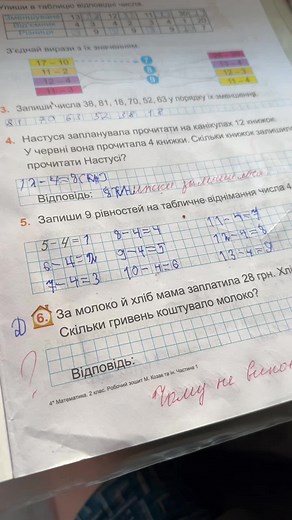 пиши в таблицю відповідні числа.
З'єднай вирази з їх значенням.
17 – 10
11 – 2
3. Запиши числа 38, 81, 18, 70, 52, 63 у порядку їх зменшення.
81 70 63 52 38 18
4. Настуся запланувала прочитати на канікулах 12 книжок.
У червні вона прочитала 4 книжки. Скільки книжок залишил
прочитати Настусі?
12-4=8(кн)
Відповідь:
5. Запиши 9 рівностей на табличне віднімання числа 4
5-4=1 8-4=4 11-4=7
6-4=2 9-4=5 12-4=8
7-4=3 10-4=6 13-4=9
Д 6. За молоко й хліб мама заплатила 28 грн. Хлі
Скільки гривень коштувало молоко?
?
Відповідь:
4* Математика. 2 клас. Робочий зошит М. Козак та ін. Частина 1
Чому не викон